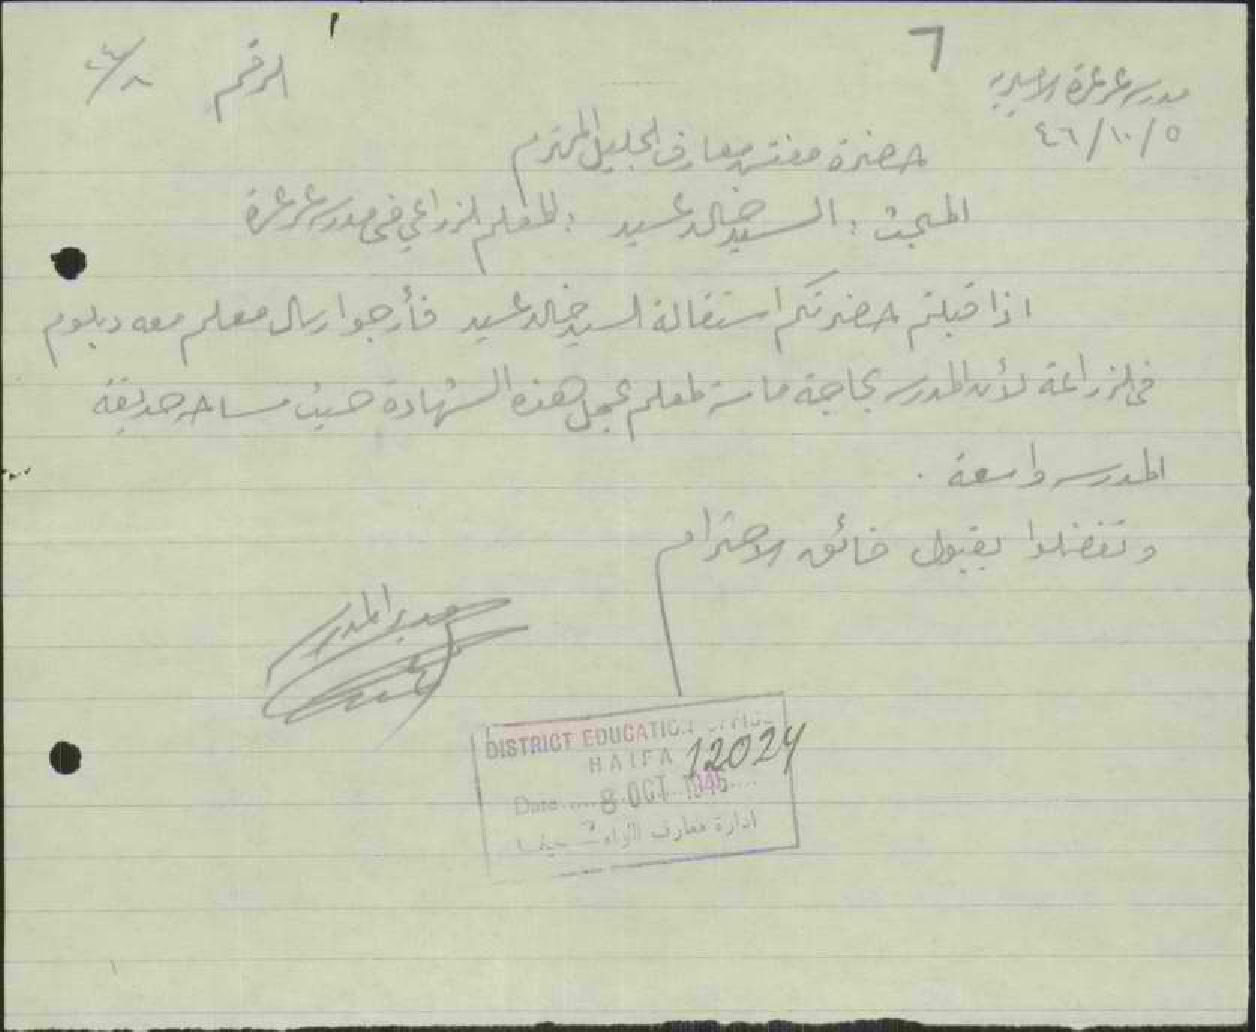 ٦
مدرسة عرعرة الاميرية
٤٦/١٠/٥
الرقم ٢٤/٨
حضرة مفتش معارف الجليل المحترم
المبحث : السيد خالد عسيد : المعلم الزراعي في مدرسة عرعرة
اذا قبلتم حضرتكم استقالة السيد خالد عسيد فأرجو ارسال معلم معه دبلوم
في الزراعة لأن المدرسة بحاجة ماسة لمعلم يحمل هذه الشهادة حيث مساحة حديقة
المدرسة واسعة .
وتفضلوا بقبول فائق الاحترام
مدير المدرسة
DISTRICT EDUCATION OFFICE
HAIFA 12024
Date..... 8 OCT 1946.....
ادارة معارف اللواء حيفا